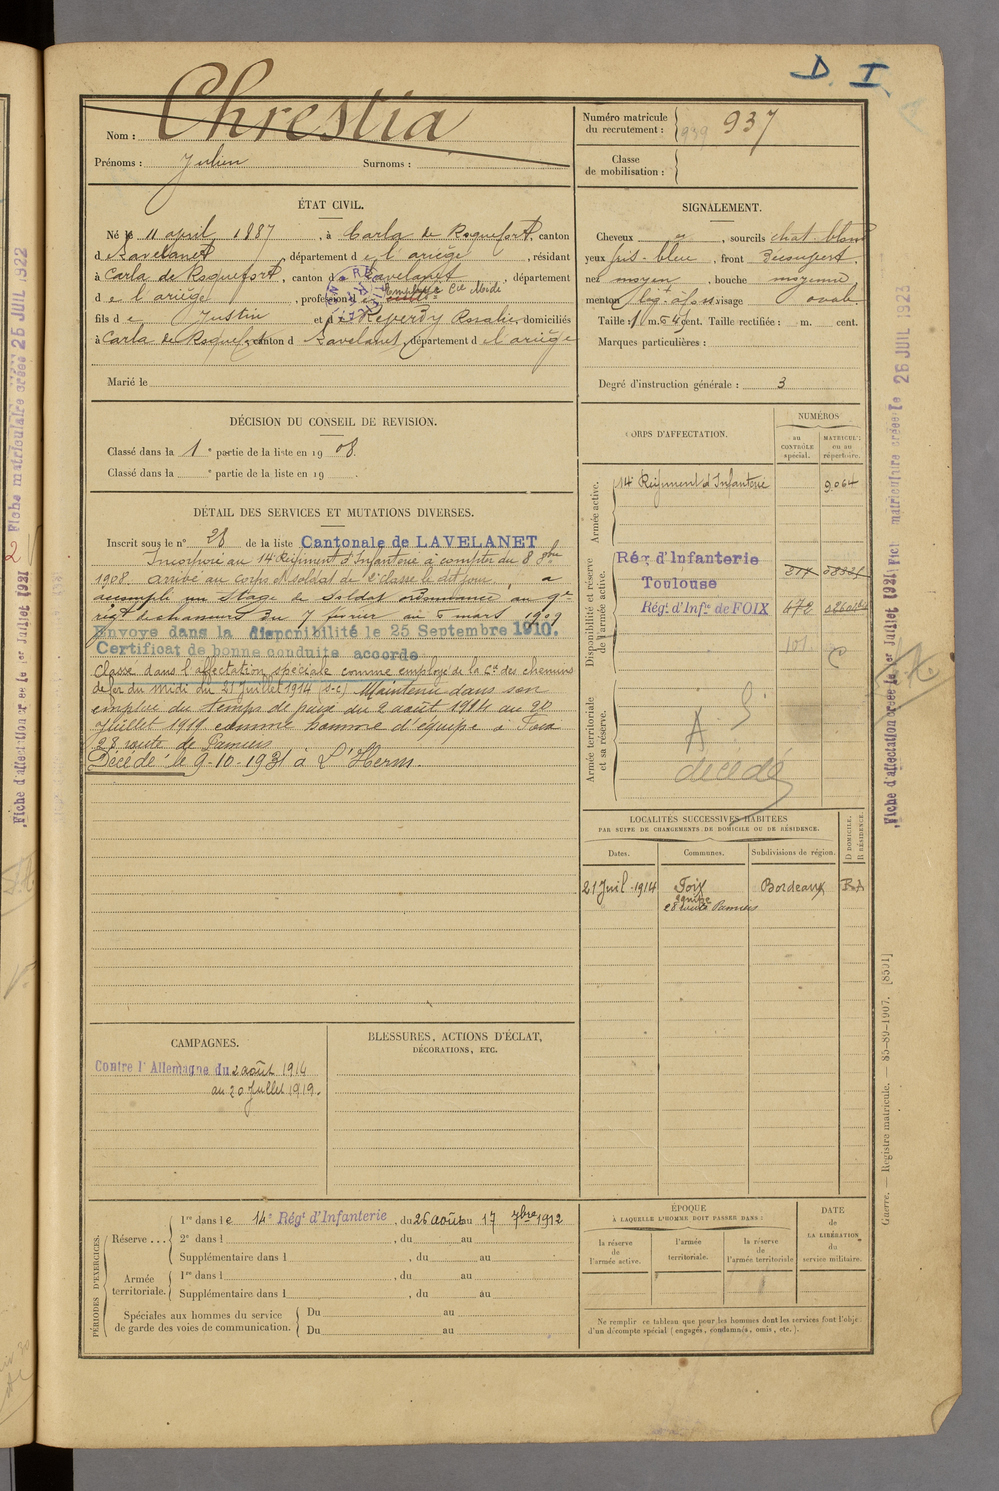 D. I.
Nom : Chrestia
Prénoms : Julien Surnoms :
Numéro matricule du recrutement : 939 937
Classe de mobilisation :
ÉTAT CIVIL.
Né le 11 april 1887, à Carla de Roquefort, canton
d Lavelanet, département de l'ariège, résidant
à Carla de Roquefort, canton d Lavelanet, département
de l'ariège, profession d Employé Cie Midi
fils de Justin et d Reverdy Rosalie, domiciliés
à Carla de Roquefort, canton d Lavelanet, département de l'ariège
Marié le
SIGNALEMENT.
Cheveux , sourcils chat-blond
yeux gris-bleu, front Découvert,
nez moyen, bouche moyenne
menton visage ovale.
Taille : 1 m. cent. Taille rectifiée : m. cent.
Marques particulières :
Degré d'instruction générale : 3
DÉCISION DU CONSEIL DE REVISION.
Classé dans la 1e partie de la liste en 1908.
Classé dans la e partie de la liste en 19 .
DÉTAIL DES SERVICES ET MUTATIONS DIVERSES.
Inscrit sous le n° 28 de la liste Cantonale de LAVELANET
Incorporé au 14e Régiment d'Infanterie à compter du 8 8bre
1908. arrivé au corps et soldat de 2e classe le dit jour, a
accompli un Stage de Soldat ordonnance au 9e
régt de chasseurs Du 7 février au 6 mars 1909
Envoyé dans la disponibilité le 25 Septembre 1910.
Certificat de bonne conduite accordé
Classé dans l'affectation spéciale comme employé de la Cie des chemins
de fer du midi du 21 juillet 1914 (S-C) Maintenu dans son
emploi du temps de paix du 2 août 1914 au 20
Juillet 1919 comme homme d'équipe à Foix
28 route de Pamiers
Décédé le 9-10-1931 à L'Herm
CORPS D'AFFECTATION.
NUMÉROS
au CONTRÔLE spécial.
MATRICULE ou au répertoire.
Armée active.
14e Régiment d'Infanterie 9064
Disponibilité et réserve de l'armée active.
Rég. d'Infanterie
Toulouse
Régt. d'Infie de FOIX 472
101 C
Armée territoriale et sa réserve.
A S
décédé
LOCALITÉS SUCCESSIVES HABITÉES
PAR SUITE DE CHANGEMENTS DE DOMICILE OU DE RÉSIDENCE.
Dates. Communes. Subdivisions de région. D DOMICILE. R RÉSIDENCE.
21 Juil. 1914 Foix Bordeaux
28 route Pamiers
CAMPAGNES.
Contre l'Allemagne du 2 août 1914
au 20 Juillet 1919.
BLESSURES, ACTIONS D'ÉCLAT,
DÉCORATIONS, ETC.
PÉRIODES D'EXERCICES.
Réserve ... 1re dans le 14e Régt d'Infanterie, du 26 août au 17 7bre 1912
2e dans l , du au
Supplémentaire dans l , du au
Armée territoriale. 1re dans l , du au
Supplémentaire dans l , du au
Spéciales aux hommes du service de garde des voies de communication. Du au
Du au
ÉPOQUE
À LAQUELLE L'HOMME DOIT PASSER DANS :
la réserve de l'armée active.
l'armée territoriale.
la réserve de l'armée territoriale
DATE de LA LIBÉRATION du service militaire.
Ne remplir ce tableau que pour les hommes dont les services font l'objet
d'un décompte spécial (engagés, condamnés, omis, etc.).
Guerre. — Registre matricule. — 85-89-1907. [8591]
Fiche d'affectation créée le 1er Juillet 1921
matriculaire créée le 26 JUIL 1923
Fiche d'affectation créée le 1er Juillet 1921
Fiche matriculaire créée 26 JUIL 1922